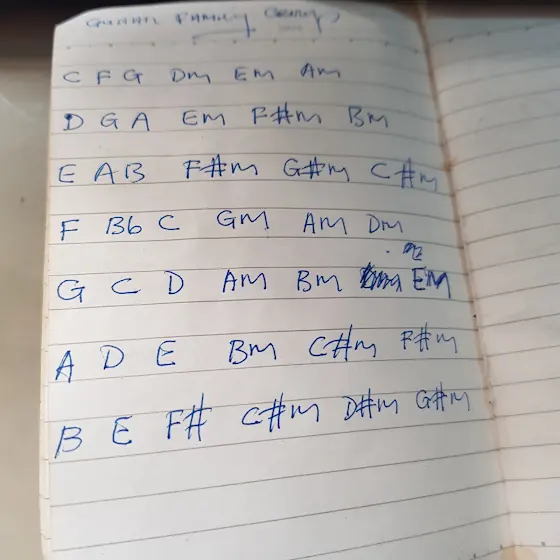 FAMILY
C F G Dm Em Am
D G A Em F#m Bm
E A B F#m G#m C#m
F Bb C Gm Am Dm
G C D Am Bm Em
A D E Bm C#m F#m
B E F# C#m D#m G#m